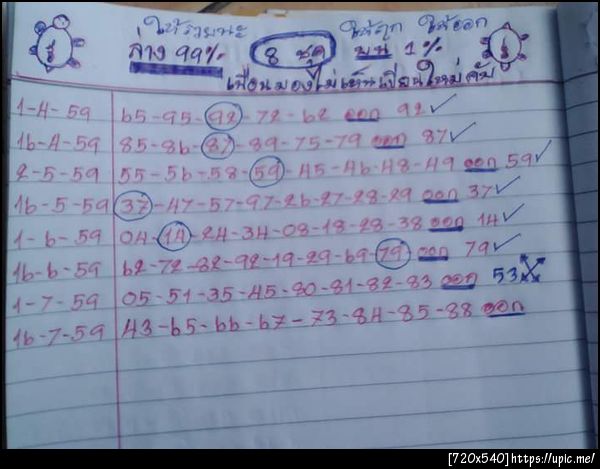 ให้รวยนะ ให้ถูก ให้ออก
ล่าง 99% 8 ชุด บน 1%
เพื่อนมองไม่เห็นเขียนใหม่ครับ
1-4-59 65-95-92-72-62 ออก 92✓
16-4-59 85-86-87-89-75-79 ออก 87✓
2-5-59 55-56-58-59-45-46-48-49 ออก 59✓
16-5-59 37-47-57-97-26-27-28-29 ออก 37✓
1-6-59 04-14-24-34-08-18-28-38 ออก 14✓
16-6-59 62-72-82-92-19-29-69-79 ออก 79✓
1-7-59 05-51-35-45-80-81-82-83 ออก 53
16-7-59 43-65-66-67-73-84-85-88 ออก
[720x540]https://upic.me/